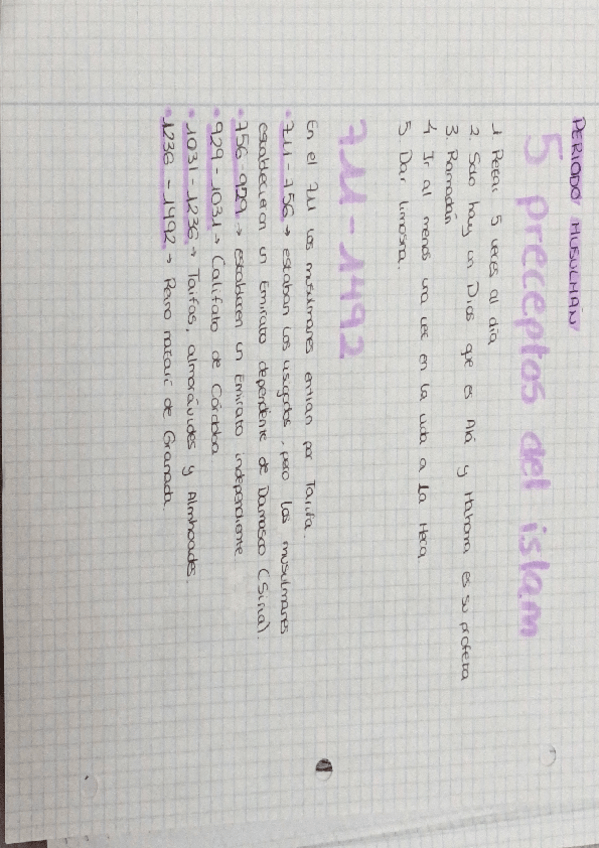 PERIODO MUSULMÁN
5 preceptos del islam
1 Rezar 5 veces al día
2. Solo hay un Dios que es Alá y Mahoma es su profeta
3 Ramadán
4 Ir al menos una vez en la vida a la Meca
5 Dar limosna.
711-1492
En el 711 los musulmanes entran por Tarifa.
• 711-756 → estaban los visigodos, pero los musulmanes
establecieron un Emirato dependiente de Damasco (Siria).
• 756-929 → establecen un Emirato independiente.
• 929-1031 → Califato de Córdoba
• 1031-1236 → Taifas, almorávides y Almohades.
• 1236-1492 → Reino nazarí de Granada.